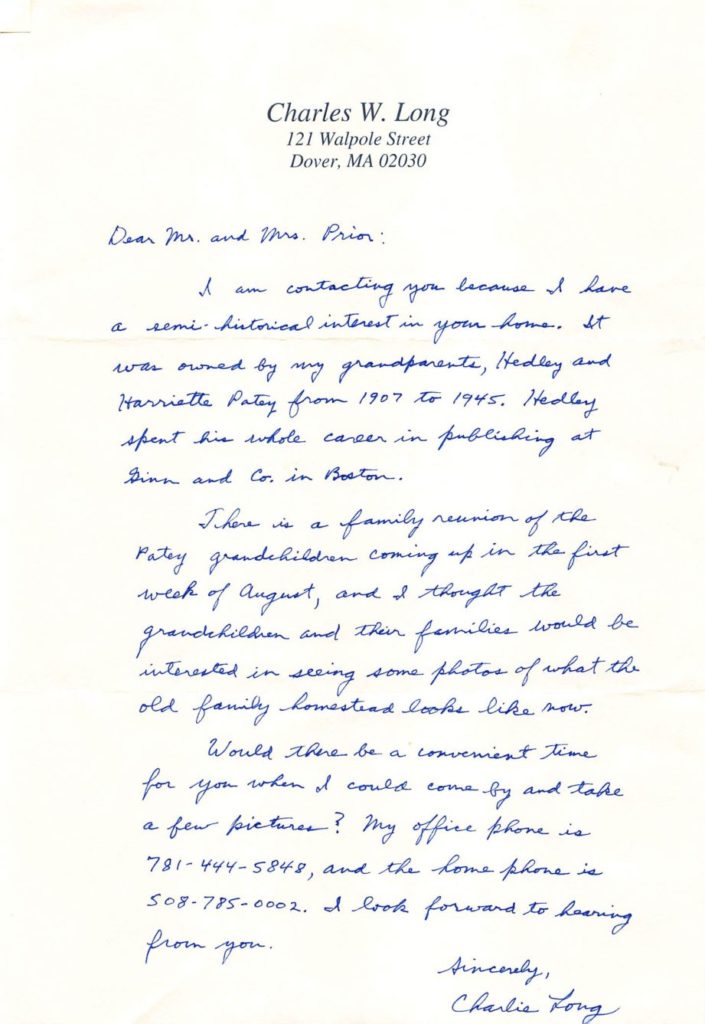 Charles W. Long
121 Walpole Street
Dover, MA 02030
Dear Mr. and Mrs. Prior:
I am contacting you because I have
a semi-historical interest in your home. It
was owned by my grandparents, Hedley and
Harriette Patey from 1907 to 1945. Hedley
spent his whole career in publishing at
Ginn and Co. in Boston.
There is a family reunion of the
Patey grandchildren coming up in the first
week of August, and I thought the
grandchildren and their families would be
interested in seeing some photos of what the
old family homestead looks like now.
Would there be a convenient time
for you when I could come by and take
a few pictures? My office phone is
781-444-5848, and the home phone is
508-785-0002. I look forward to hearing
from you.
Sincerely,
Charlie Long